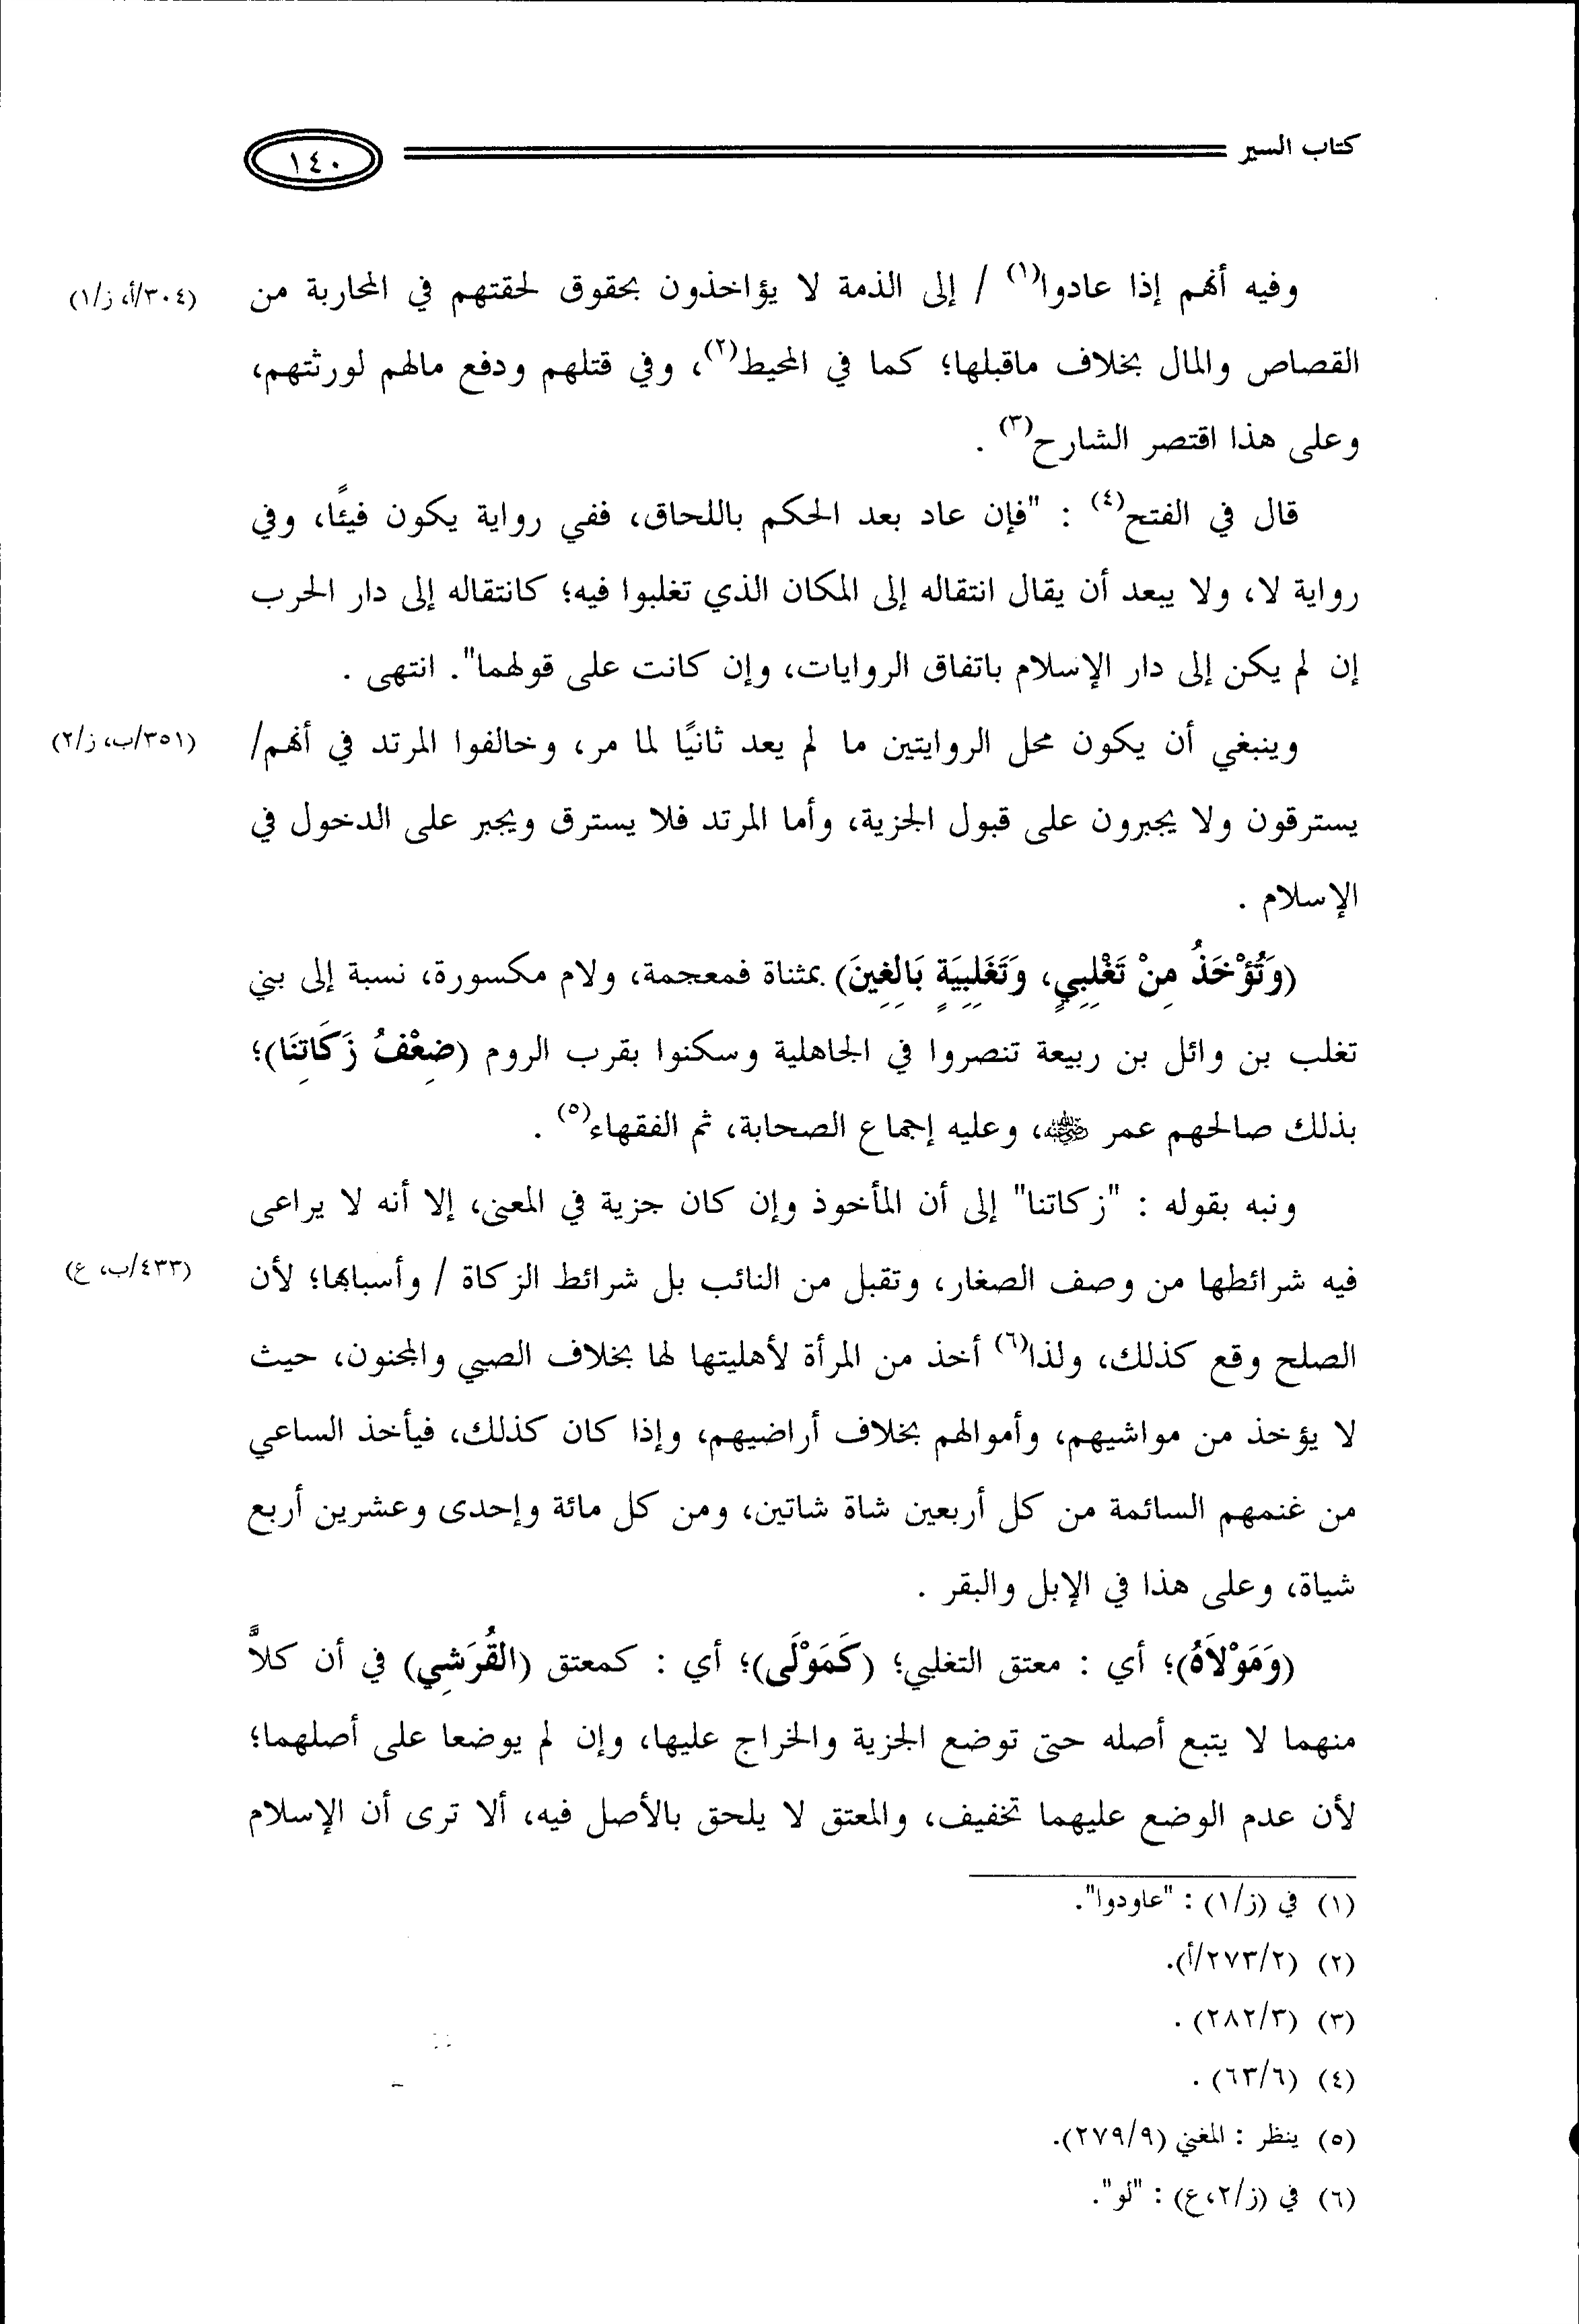 كتاب السير
١٤٠
وفيه أنهم إذا عادوا(١) / إلى الذمة لا يؤاخذون بحقوق لحقتهم في المحاربة من
(٣٠٤/أ، ز/١)
القصاص والمال بخلاف ماقبلها؛ كما في المحيط(٢)، وفي قتلهم ودفع مالهم لورثتهم،
وعلى هذا اقتصر الشارح(٣) .
قال في الفتح(٤) : "فإن عاد بعد الحكم باللحاق، ففي رواية يكون فيئًا، وفي
رواية لا، ولا يبعد أن يقال انتقاله إلى المكان الذي تغلبوا فيه؛ كانتقاله إلى دار الحرب
إن لم يكن إلى دار الإسلام باتفاق الروايات، وإن كانت على قولهما". انتهى .
وينبغي أن يكون محل الروايتين ما لم يعد ثانيًا لما مر، وخالفوا المرتد في أنهم/
(٣٥١/ب، ز/٢)
يسترقون ولا يجبرون على قبول الجزية، وأما المرتد فلا يسترق ويجبر على الدخول في
الإسلام .
(وَتُؤْخَذُ مِنْ تَغْلِبِيٍ، وَتَغَلِبِيَةٍ بَالِغِينَ) بمثناة فمعجمة، ولام مكسورة، نسبة إلى بني
تغلب بن وائل بن ربيعة تنصروا في الجاهلية وسكنوا بقرب الروم (ضِعْفُ زَكَاتِنَا)؛
بذلك صالحهم عمر ﵁، وعليه إجماع الصحابة، ثم الفقهاء(٥) .
ونبه بقوله : "زكاتنا" إلى أن المأخوذ وإن كان جزية في المعنى، إلا أنه لا يراعى
فيه شرائطها من وصف الصغار، وتقبل من النائب بل شرائط الزكاة / وأسبابها؛ لأن
(٤٣٣/ب، ع)
الصلح وقع كذلك، ولذا(٦) أخذ من المرأة لأهليتها لها بخلاف الصبي والمجنون، حيث
لا يؤخذ من مواشيهم، وأموالهم بخلاف أراضيهم، وإذا كان كذلك، فيأخذ الساعي
من غنمهم السائمة من كل أربعين شاة شاتين، ومن كل مائة وإحدى وعشرين أربع
شياة، وعلى هذا في الإبل والبقر .
(وَمَوْلاَهُ)؛ أي : معتق التغلبي؛ (كَمَوْلَى)؛ أي : كمعتق (القُرَشِي) في أن كلاًّ
منهما لا يتبع أصله حتى توضع الجزية والخراج عليها، وإن لم يوضعا على أصلهما؛
لأن عدم الوضع عليهما تخفيف، والمعتق لا يلحق بالأصل فيه، ألا ترى أن الإسلام
(١) في (ز/١) : "عاودوا".
(٢) (٢٧٣/٢/أ).
(٣) (٢٨٢/٣) .
(٤) (٦٣/٦) .
(٥) ينظر : المغني (٢٧٩/٩).
(٦) في (ز/٢،ع) : "لو".